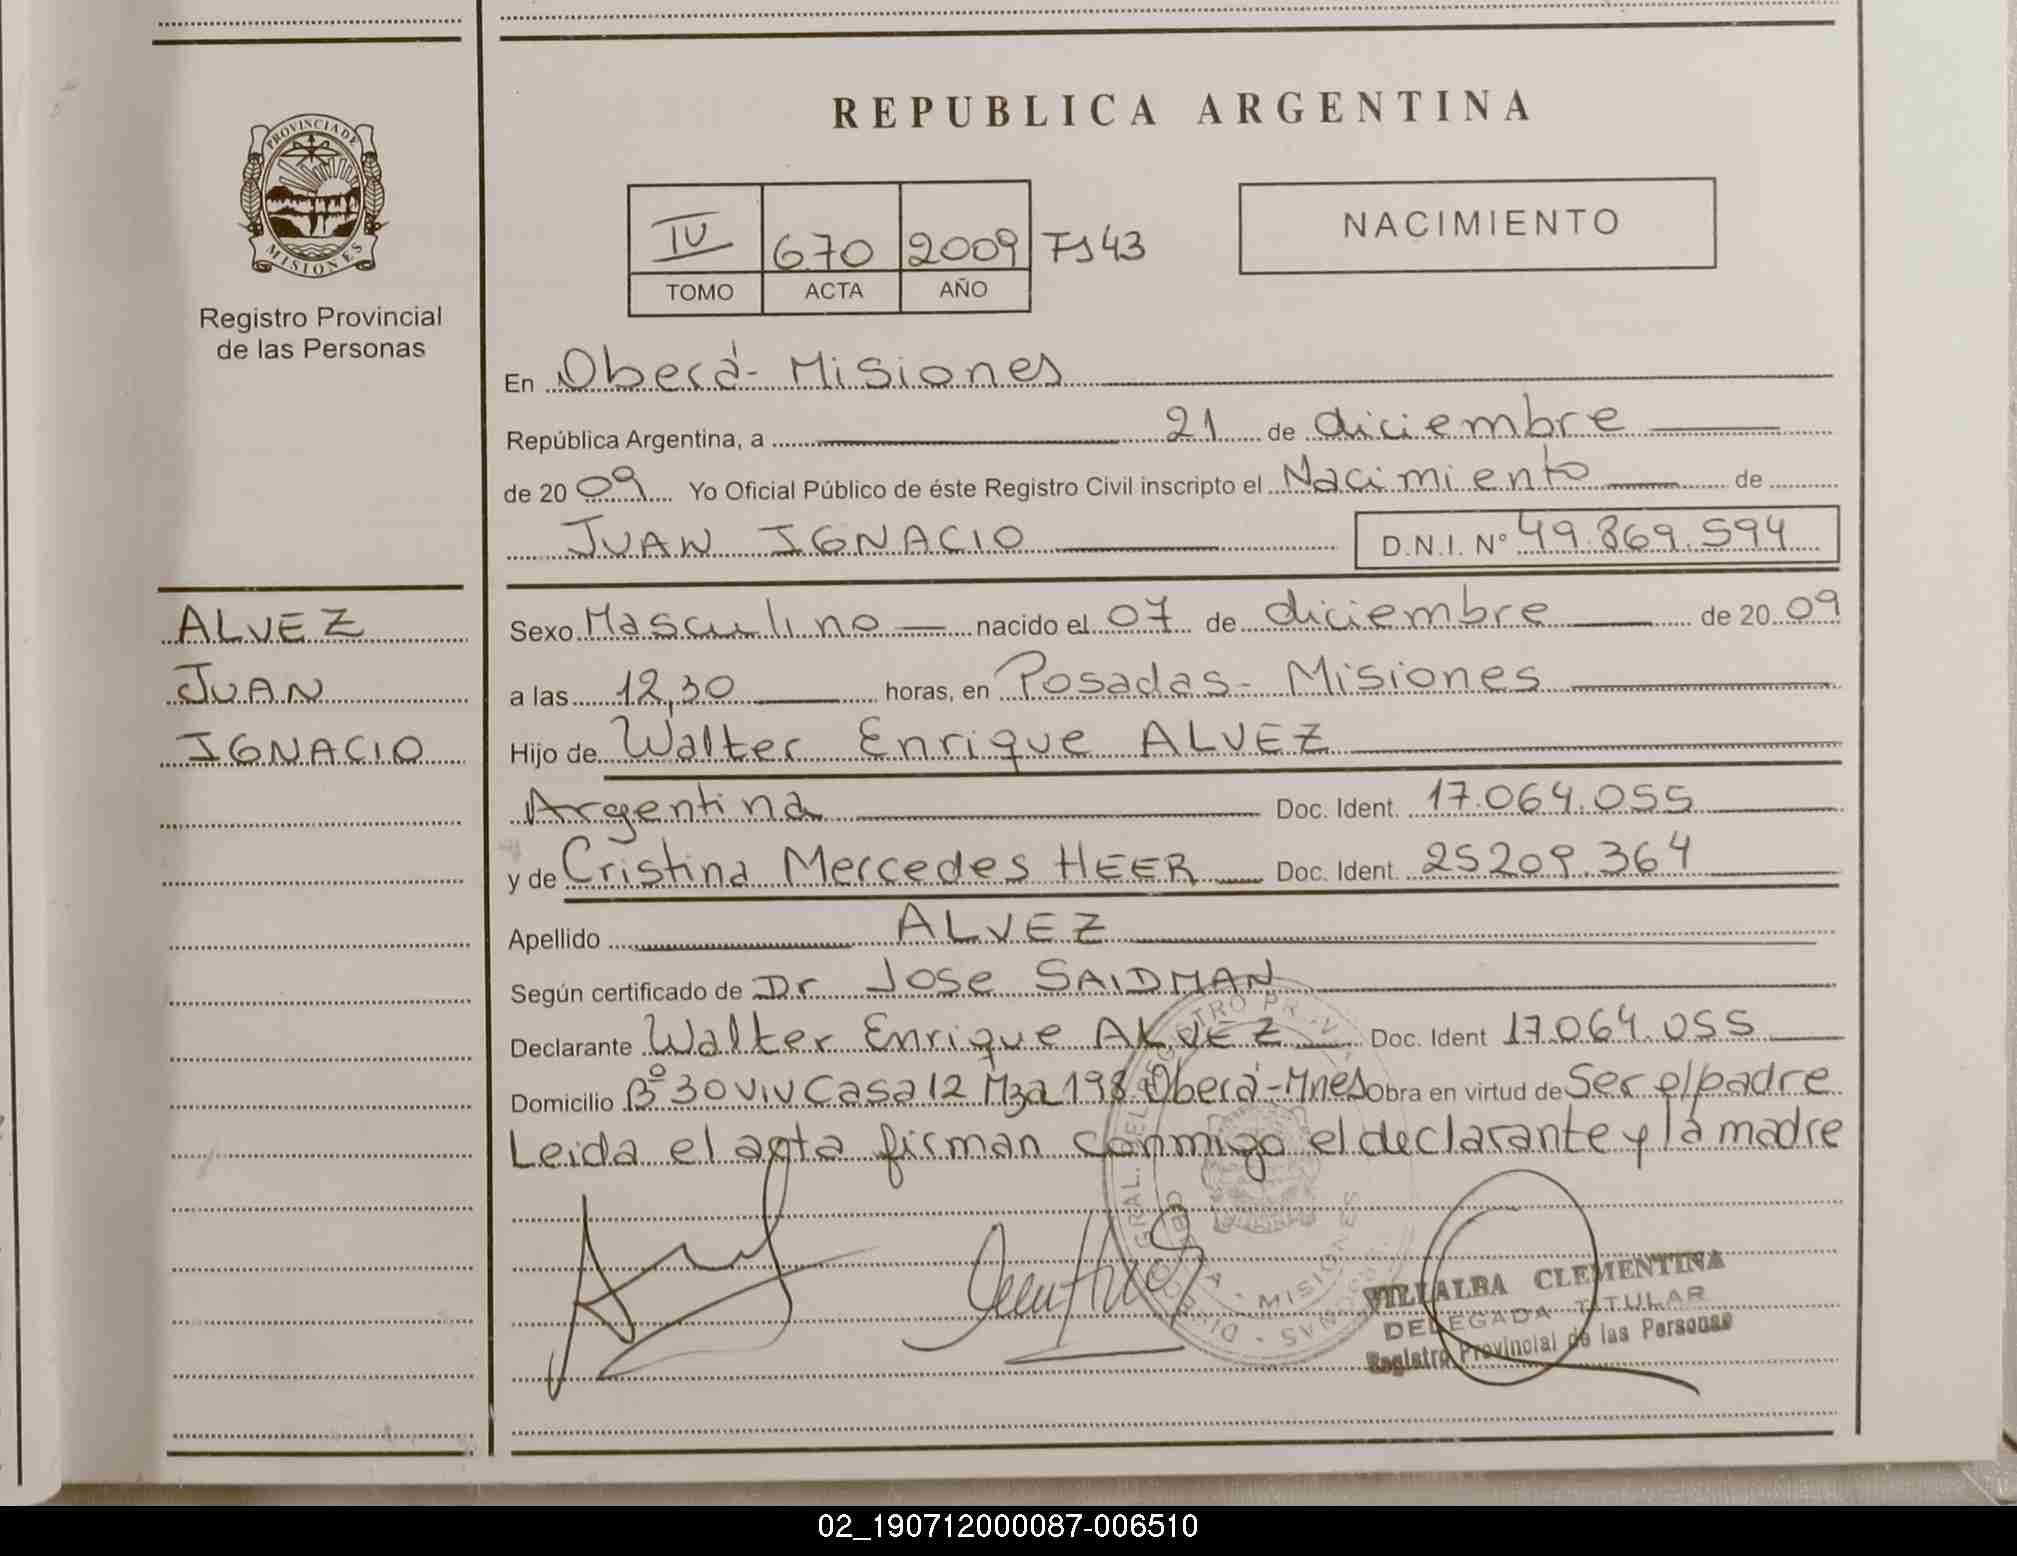 REPUBLICA ARGENTINA
PROVINCIA DE
MISIONES
Registro Provincial
de las Personas
IV 670 2009 Fs 43
TOMO ACTA AÑO
NACIMIENTO
En Oberá - Misiones
República Argentina, a 21 de diciembre
de 20 09 Yo Oficial Público de éste Registro Civil inscripto el Nacimiento de
JUAN IGNACIO D.N.I. N° 49.869.594
ALVEZ
JUAN
IGNACIO
Sexo Masculino nacido el 07 de diciembre de 20 09
a las 12,30 horas, en Posadas - Misiones
Hijo de Walter Enrique ALVEZ
Argentina Doc. Ident. 17.064.055
y de Cristina Mercedes HEER Doc. Ident. 25209.364
Apellido ALVEZ
Según certificado de Dr Jose SAIDMAN
Declarante Walter Enrique ALVEZ Doc. Ident 17.064.055
Domicilio B° 30 Viv Casa 12 Mza 198 Oberá - Mnes Obra en virtud de Ser el padre
Leida el acta firman conmigo el declarante y la madre
MISIONES
VILLALBA CLEMENTINA
DELEGADA TITULAR
Registro Provincial de las Personas
02_190712000087-006510